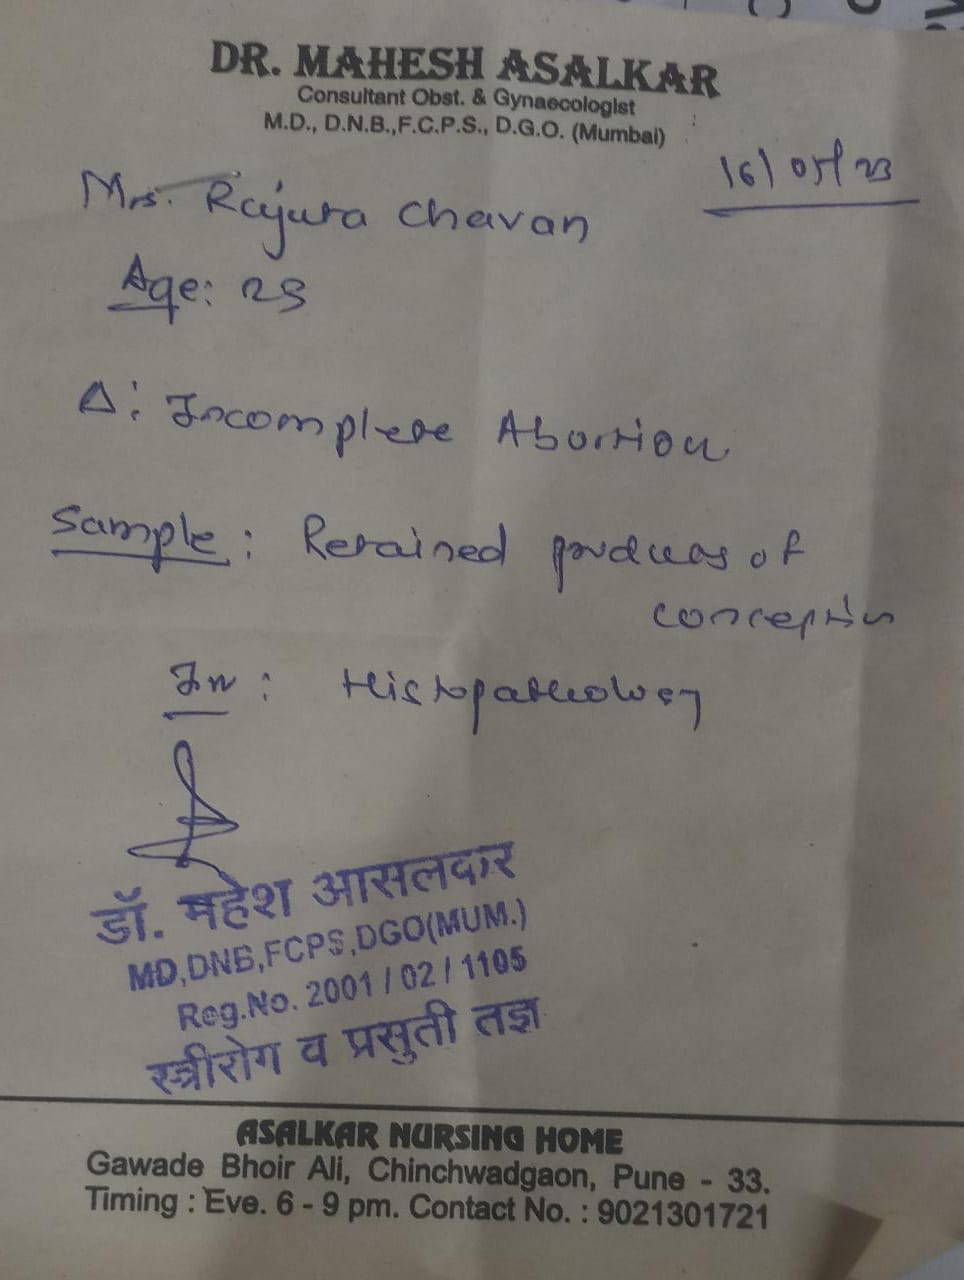 DR. MAHESH ASALKAR
Consultant Obst. & Gynaecologist
M.D., D.N.B.,F.C.P.S., D.G.O. (Mumbai)
16/05/23
Mrs. Rujuta Chavan
Age: 29
Δ: Incomplete Abortion
Sample: Retained products of
conception
Inv: Histopathology
डॉ. महेश आसलकर
MD,DNB,FCPS,DGO(MUM.)
Reg.No. 2001/02/1105
स्त्रीरोग व प्रसुती तज्ञ
ASALKAR NURSING HOME
Gawade Bhoir Ali, Chinchwadgaon, Pune - 33.
Timing : Eve. 6 - 9 pm. Contact No. : 9021301721